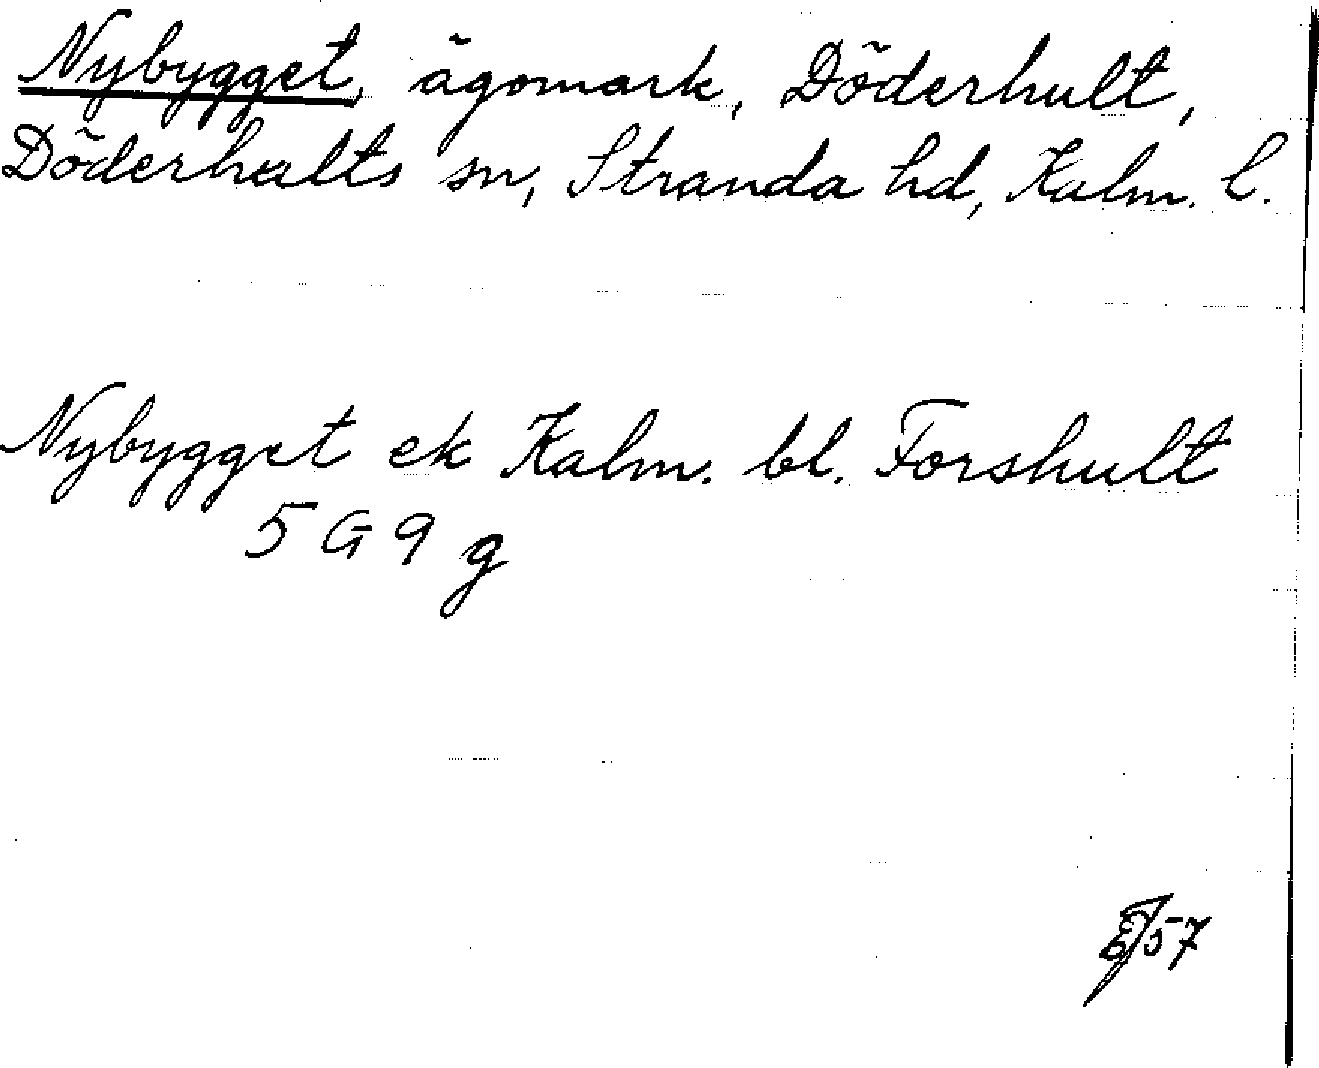 Nybygget, ägomark, Döderhult,
Döderhults sn, Stranda hd, Kalm. l.
Nybygget ek Kalm. bl. Forshult
5 G 9 g
EJ 57